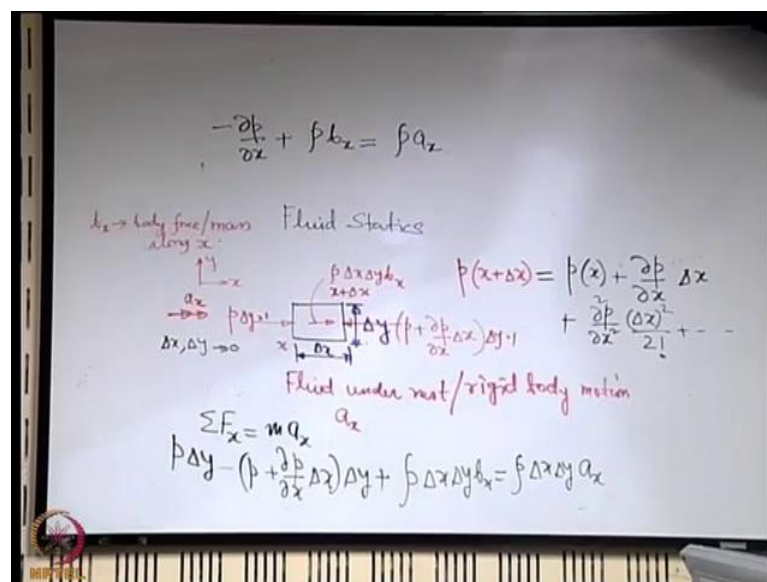 -∂p/∂x + ρb_x = ρa_x
b_x → body force/mass along x
Fluid Statics
y
x
a_x
Δx, Δy → 0
pΔy×1
ρΔxΔy b_x
x+Δx
x
Δx
Δy
(p + ∂p/∂x Δx)Δy·1
p(x+Δx) = p(x) + ∂p/∂x Δx
+ ∂²p/∂x² (Δx)²/2! + - -
Fluid under rest/rigid body motion
a_x
ΣF_x = ma_x
pΔy - (p + ∂p/∂x Δx)Δy + ρΔxΔy b_x = ρΔxΔy a_x
NPTEL